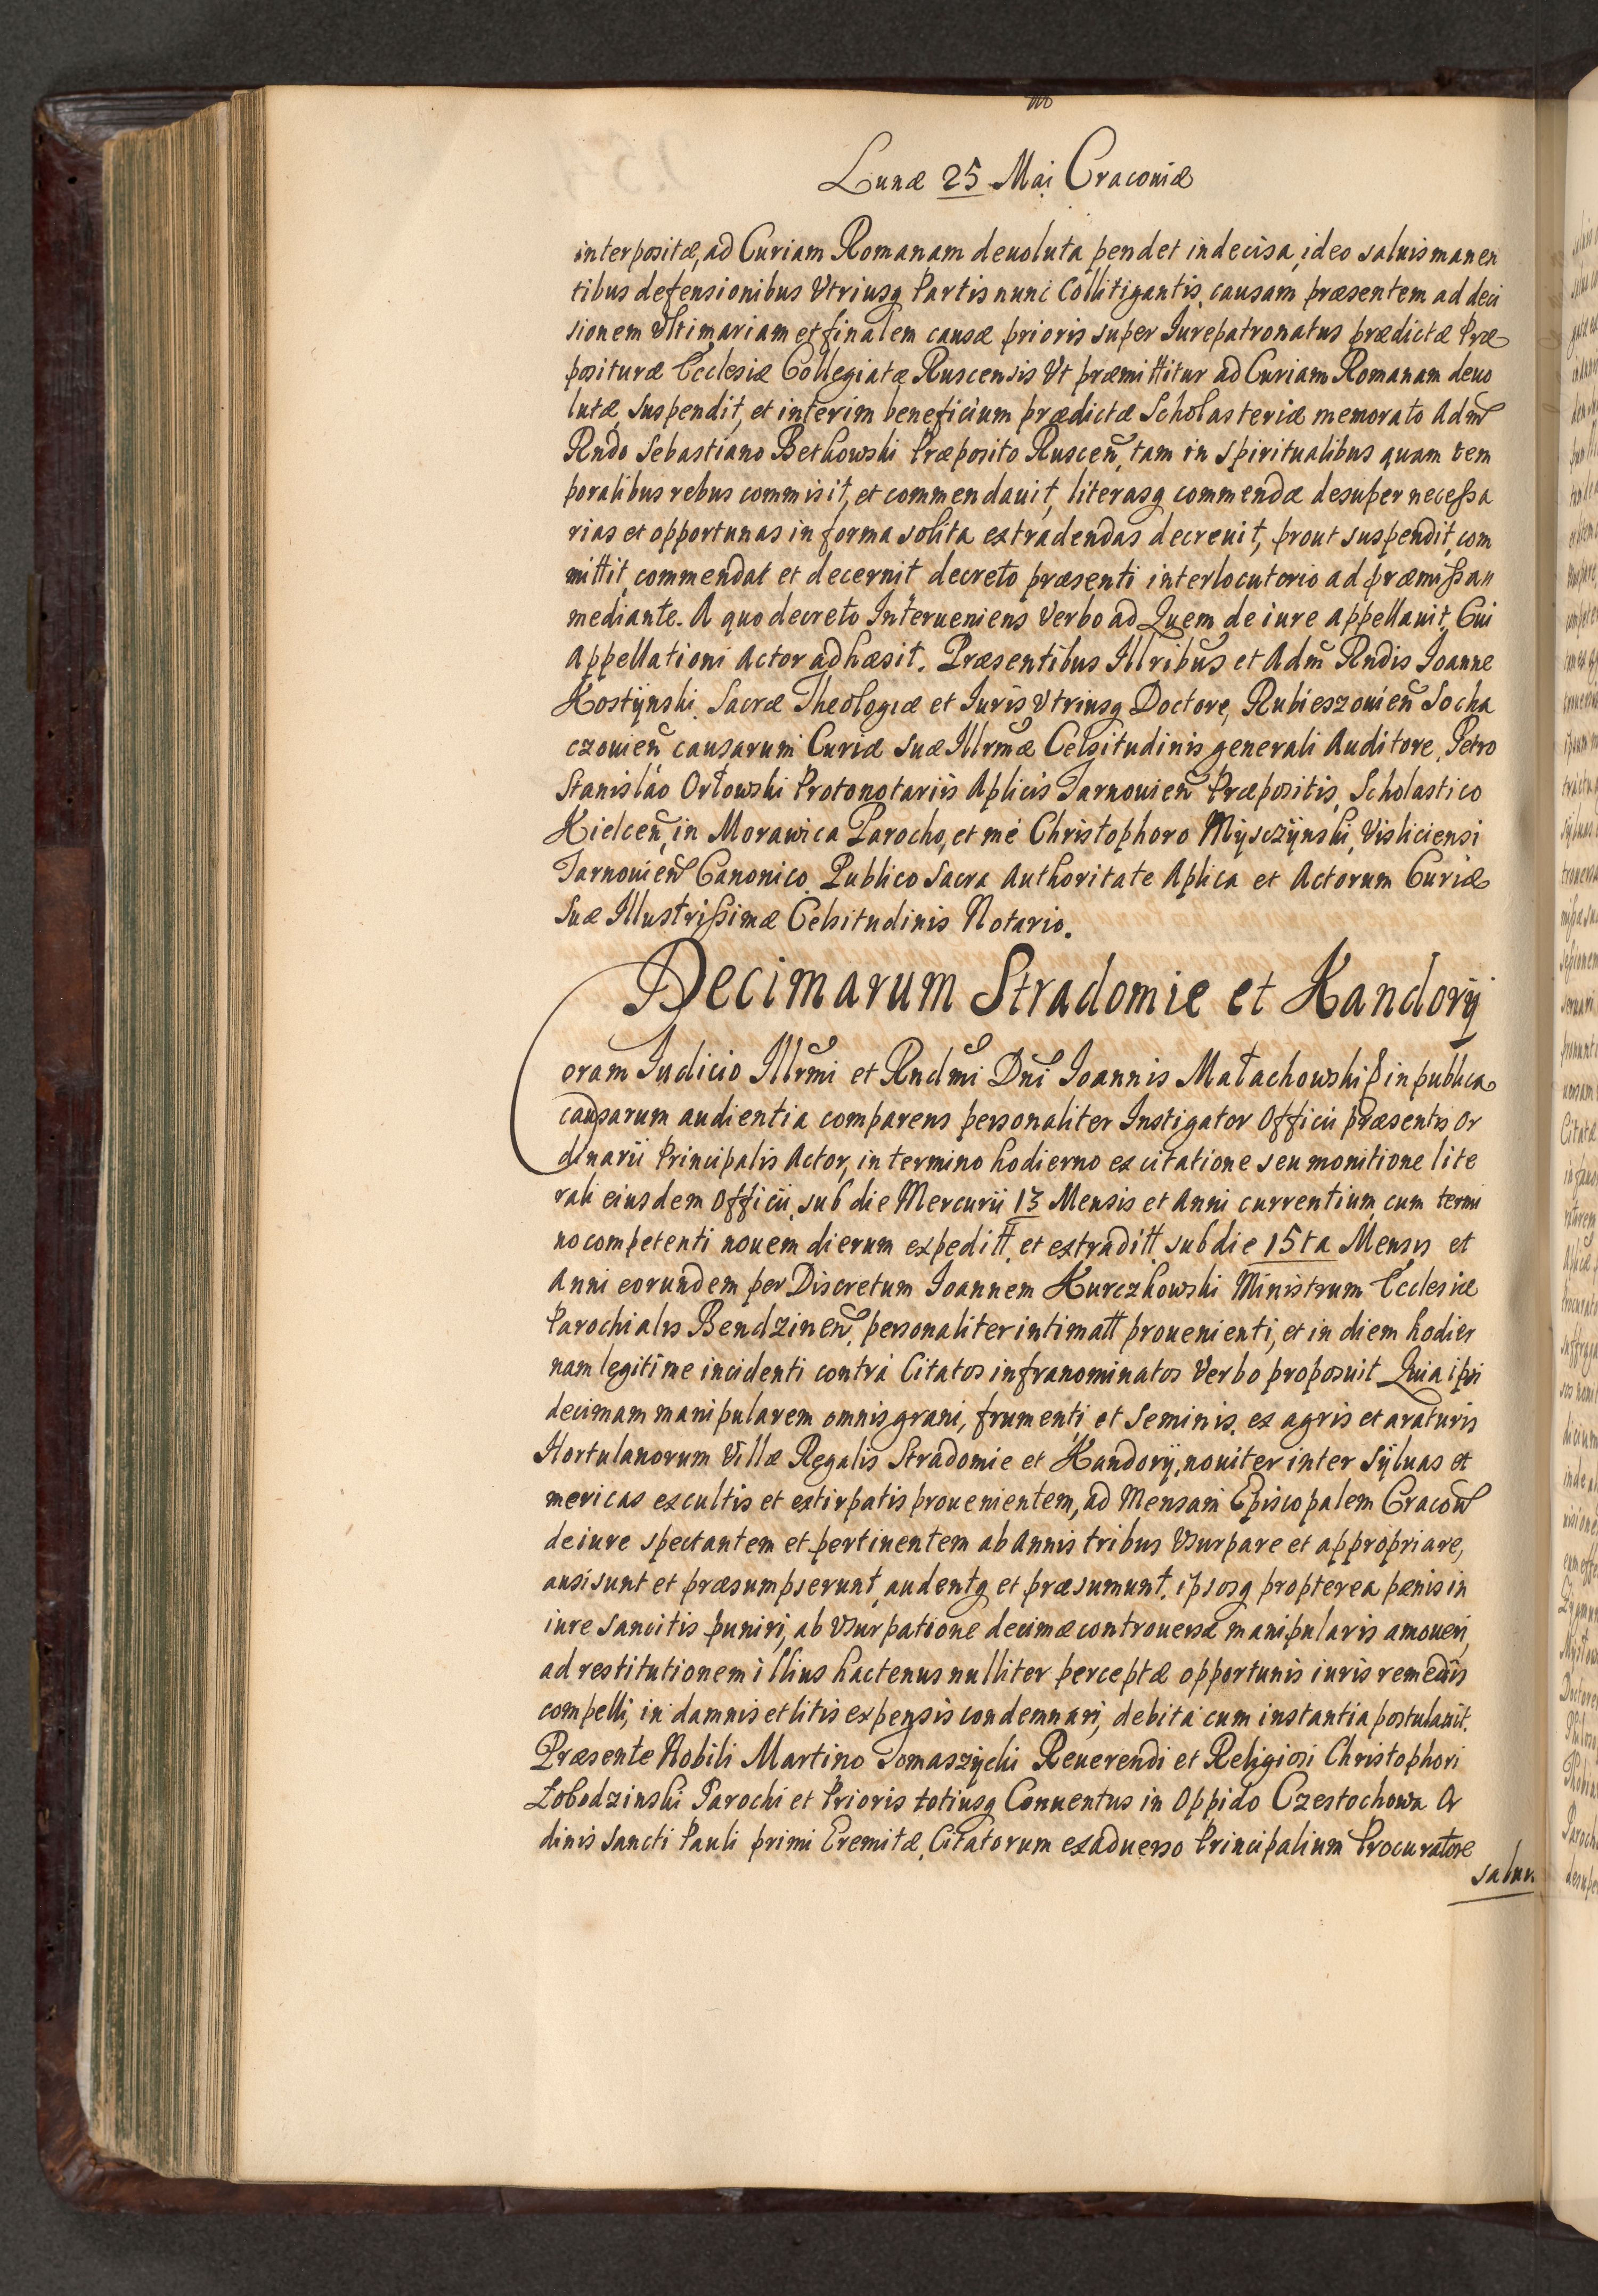 Lunæ 25 Mai Cracoviæ
interpositæ, ad Curiam Romanam deuoluta pendet indecisa, ideo saluis manen
tibus defensionibus Vtriusq Partis nunc Collitigantis, causam præsentem ad deci
sionem Vltimariam et finalem causæ prioris super Iurepatronatus prædictæ Præ
posituræ Ecclesiæ Collegiatæ Ruscensis Vt præmittitur ad Curiam Romanam deuo
lutæ, suspendit, et interim beneficium prædictæ Scholasteriæ memorato Adm̃
Rndo Sebastiano Bethowski Præposito Ruscen̄, tam in spiritualibus quam tem
poralibus rebus commisit, et commendauit, literasq commendæ desuper necessa
rias et opportunas in forma solita extradendas decreuit, prout suspendit, com
mittit, commendat et decernit decreto præsenti interlocutorio ad præmissa
mediante. A quo decreto Interueniens Verbo ad Quem de iure appellauit, Cui
Appellationi Actor adhæsit. Præsentibus Illribus et Adm̃ Rndis Ioanne
Kostÿnski, Sacræ Theologiæ et Iuris Vtriusq Doctore, Rubieszouien̄ Socha
czouien̄ causarum Curiæ suæ Illrmæ Celsitudinis generali Auditore, Petro
Stanislao Orłowski Protonotariis Aplicis Tarnouien̄ Præpositis, Scholastico
Kielcen̄, in Morawica Parocho, et me Christophoro Mÿsczÿnski, Visliciensi
Tarnouien̄ Canonico, Publico Sacra Authoritate Aplica et Actorum Curiæ
suæ Illustrissimæ Celsitudinis Notario.
Decimarum Stradomie et Kandorÿ
Coram Iudicio Illrmi et Rndmi Dni Ioannis Małachowski in publica
causarum audientia comparens personaliter Instigator Officii præsentis Or
dinarii Principalis Actor, in termino hodierno ex citatione seu monitione lite
rali eiusdem Officii, sub die Mercurii 13 Mensis et Anni currentium cum termi
no competenti nouem dierum expeditt, et extraditt, sub die 15ta Mensis et
Anni eorundem per Discretum Ioannem Kurczkowski Ministrum Ecclesiæ
Parochialis Bendzinen̄, personaliter intimatt prouenienti, et in diem hodier
nam legitime incidenti contra Citatos infranominatos Verbo proposuit Quia ipsi
decimam manipularem omnis grani, frumenti, et seminis, ex agris et araturis
Hortulanorum Villæ Regalis Stradomie et Kandorÿ, nouiter inter sÿluas et
mericas excultis et extirpatis prouenientem, ad Mensam Episcopalem Cracou̅
de iure spectantem et pertinentem ab annis tribus Vsurpare et appropriare,
ausi sunt et præsumpserunt, audentq et præsumunt, ipsosq propterea pænis in
iure sancitis puniri, ab Vsurpatione decimæ controuersæ manipularis amoueri,
ad restitutionem illius hactenus nulliter perceptæ opportunis iuris remediis
compelli, in damnis et litis expensis condemnari, debita cum instantia postulauit.
Præsente Nobili Martino Tomaszÿcki Reuerendi et Religiosi Christophori
Łobodzinski Parochi et Prioris totiusq Conuentus in Oppido Czestochowa Or
dinis Sancti Pauli primi Eremitæ, Citatorum exaduerso Principalium Procuratore
saluu.